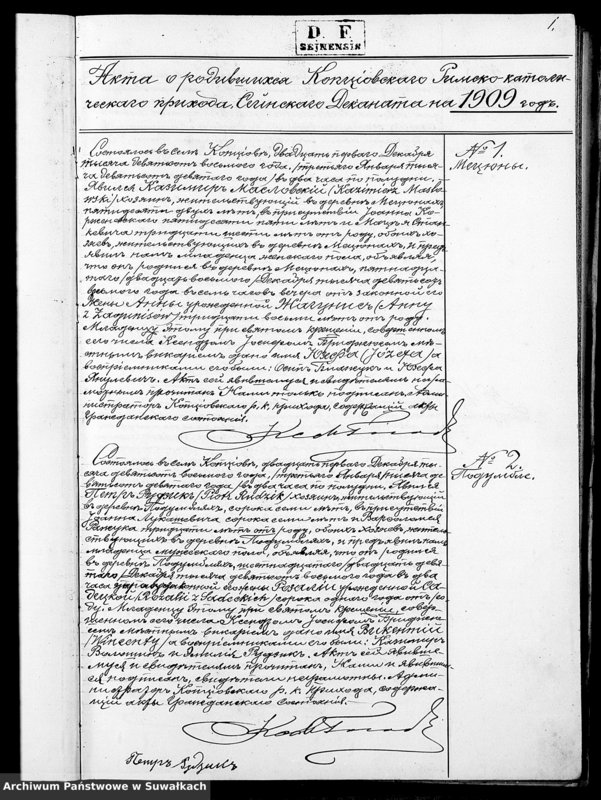 1.
D. F.
SEJNENSIN
Акта о родившихся Копціовскаго Римско-католи-
ческаго прихода, Сейнскаго Деканата на 1909 годъ.
№ 1.
Мецюны.
Состоялось въ сел. Копціовѣ, двадцать перваго Декабря
тысяча девятьсотъ восьмого года /третьяго Января тыся-
ча девятьсотъ девятаго года/ въ два часа по полудни.
Явился Казимиръ Масловскій (Kazimierz Masłow-
ski) хозяинъ, жительствующій въ деревнѣ Мецюнахъ,
пятидесяти двухъ лѣтъ, въ присутствіи Іоанна
пятидесяти пяти лѣтъ и Стан-
кевича тридцати шести лѣтъ отъ роду, обоихъ хо-
зяевъ, жительствующихъ въ деревнѣ Мецюнахъ, и пред-
явилъ намъ младенца женскаго пола, объявляя,
что онъ родился въ деревнѣ Мецюнахъ, пятнадца-
таго /двадцать восьмого/ Декабря тысяча девятьсотъ
восьмого года въ семь часовъ вечера отъ законной его
жены Анны урожденной Жагунисъ (Anny
z Żagunisów) тридцати восьми лѣтъ отъ роду.
Младенцу этому при святомъ крещеніи, совершенномъ
сего числа Ксендзомъ Іосифомъ мѣ-
стнымъ викаріемъ дано имя Юзефа (Józefa) а
воспріемниками его были: и Юзефа
Актъ сей явившемуся и свидѣтелямъ негра-
мотнымъ прочитанъ, Нами только подписанъ. Адми-
нистраторъ Копціовскаго р. к. прихода, содержащій акты
гражданскаго состоянія.
№ 2.
Подумбле.
Состоялось въ сел. Копціовѣ, двадцать перваго Декабря ты-
сяча девятьсотъ восьмого года, /третьяго Января тысяча де-
вятьсотъ девятаго года/ въ два часа по полудни. Явился
Петръ Рудзикъ /Piotr Rudzik/ хозяинъ, жительствующій
въ деревнѣ сорока семи лѣтъ, въ присутствіи
Іоанна Лукашевича сорока семи лѣтъ и Варфоломея
тридцати лѣтъ отъ роду, обоихъ хозяевъ, житель-
ствующихъ въ деревнѣ и предъявилъ намъ
младенца мужескаго пола, объявляя, что онъ родился
въ деревнѣ шестнадцатаго /двадцать девя-
таго/ Декабря тысяча девятьсотъ восьмого года въ два
часа отъ законной его жены Розаліи урожденной Са-
децкой /Rozalii z Sadeckich/ сорока одного года отъ ро-
ду. Младенцу этому при святомъ крещеніи, совер-
шенномъ сего числа Ксендзомъ Іосифомъ
мѣстнымъ викаріемъ дано имя Викентій
/Wincenty/ а воспріемниками его были: Казимиръ
и Рудзикъ. Актъ сей явивше-
муся и свидѣтелямъ прочитанъ, Нами и явившим-
ся подписанъ, свидѣтели неграмотны. Адми-
нистраторъ Копціовскаго р. к. прихода, содержа-
щій акты гражданскаго состоянія.
Петръ Рудзикъ
Archiwum Państwowe w Suwałkach